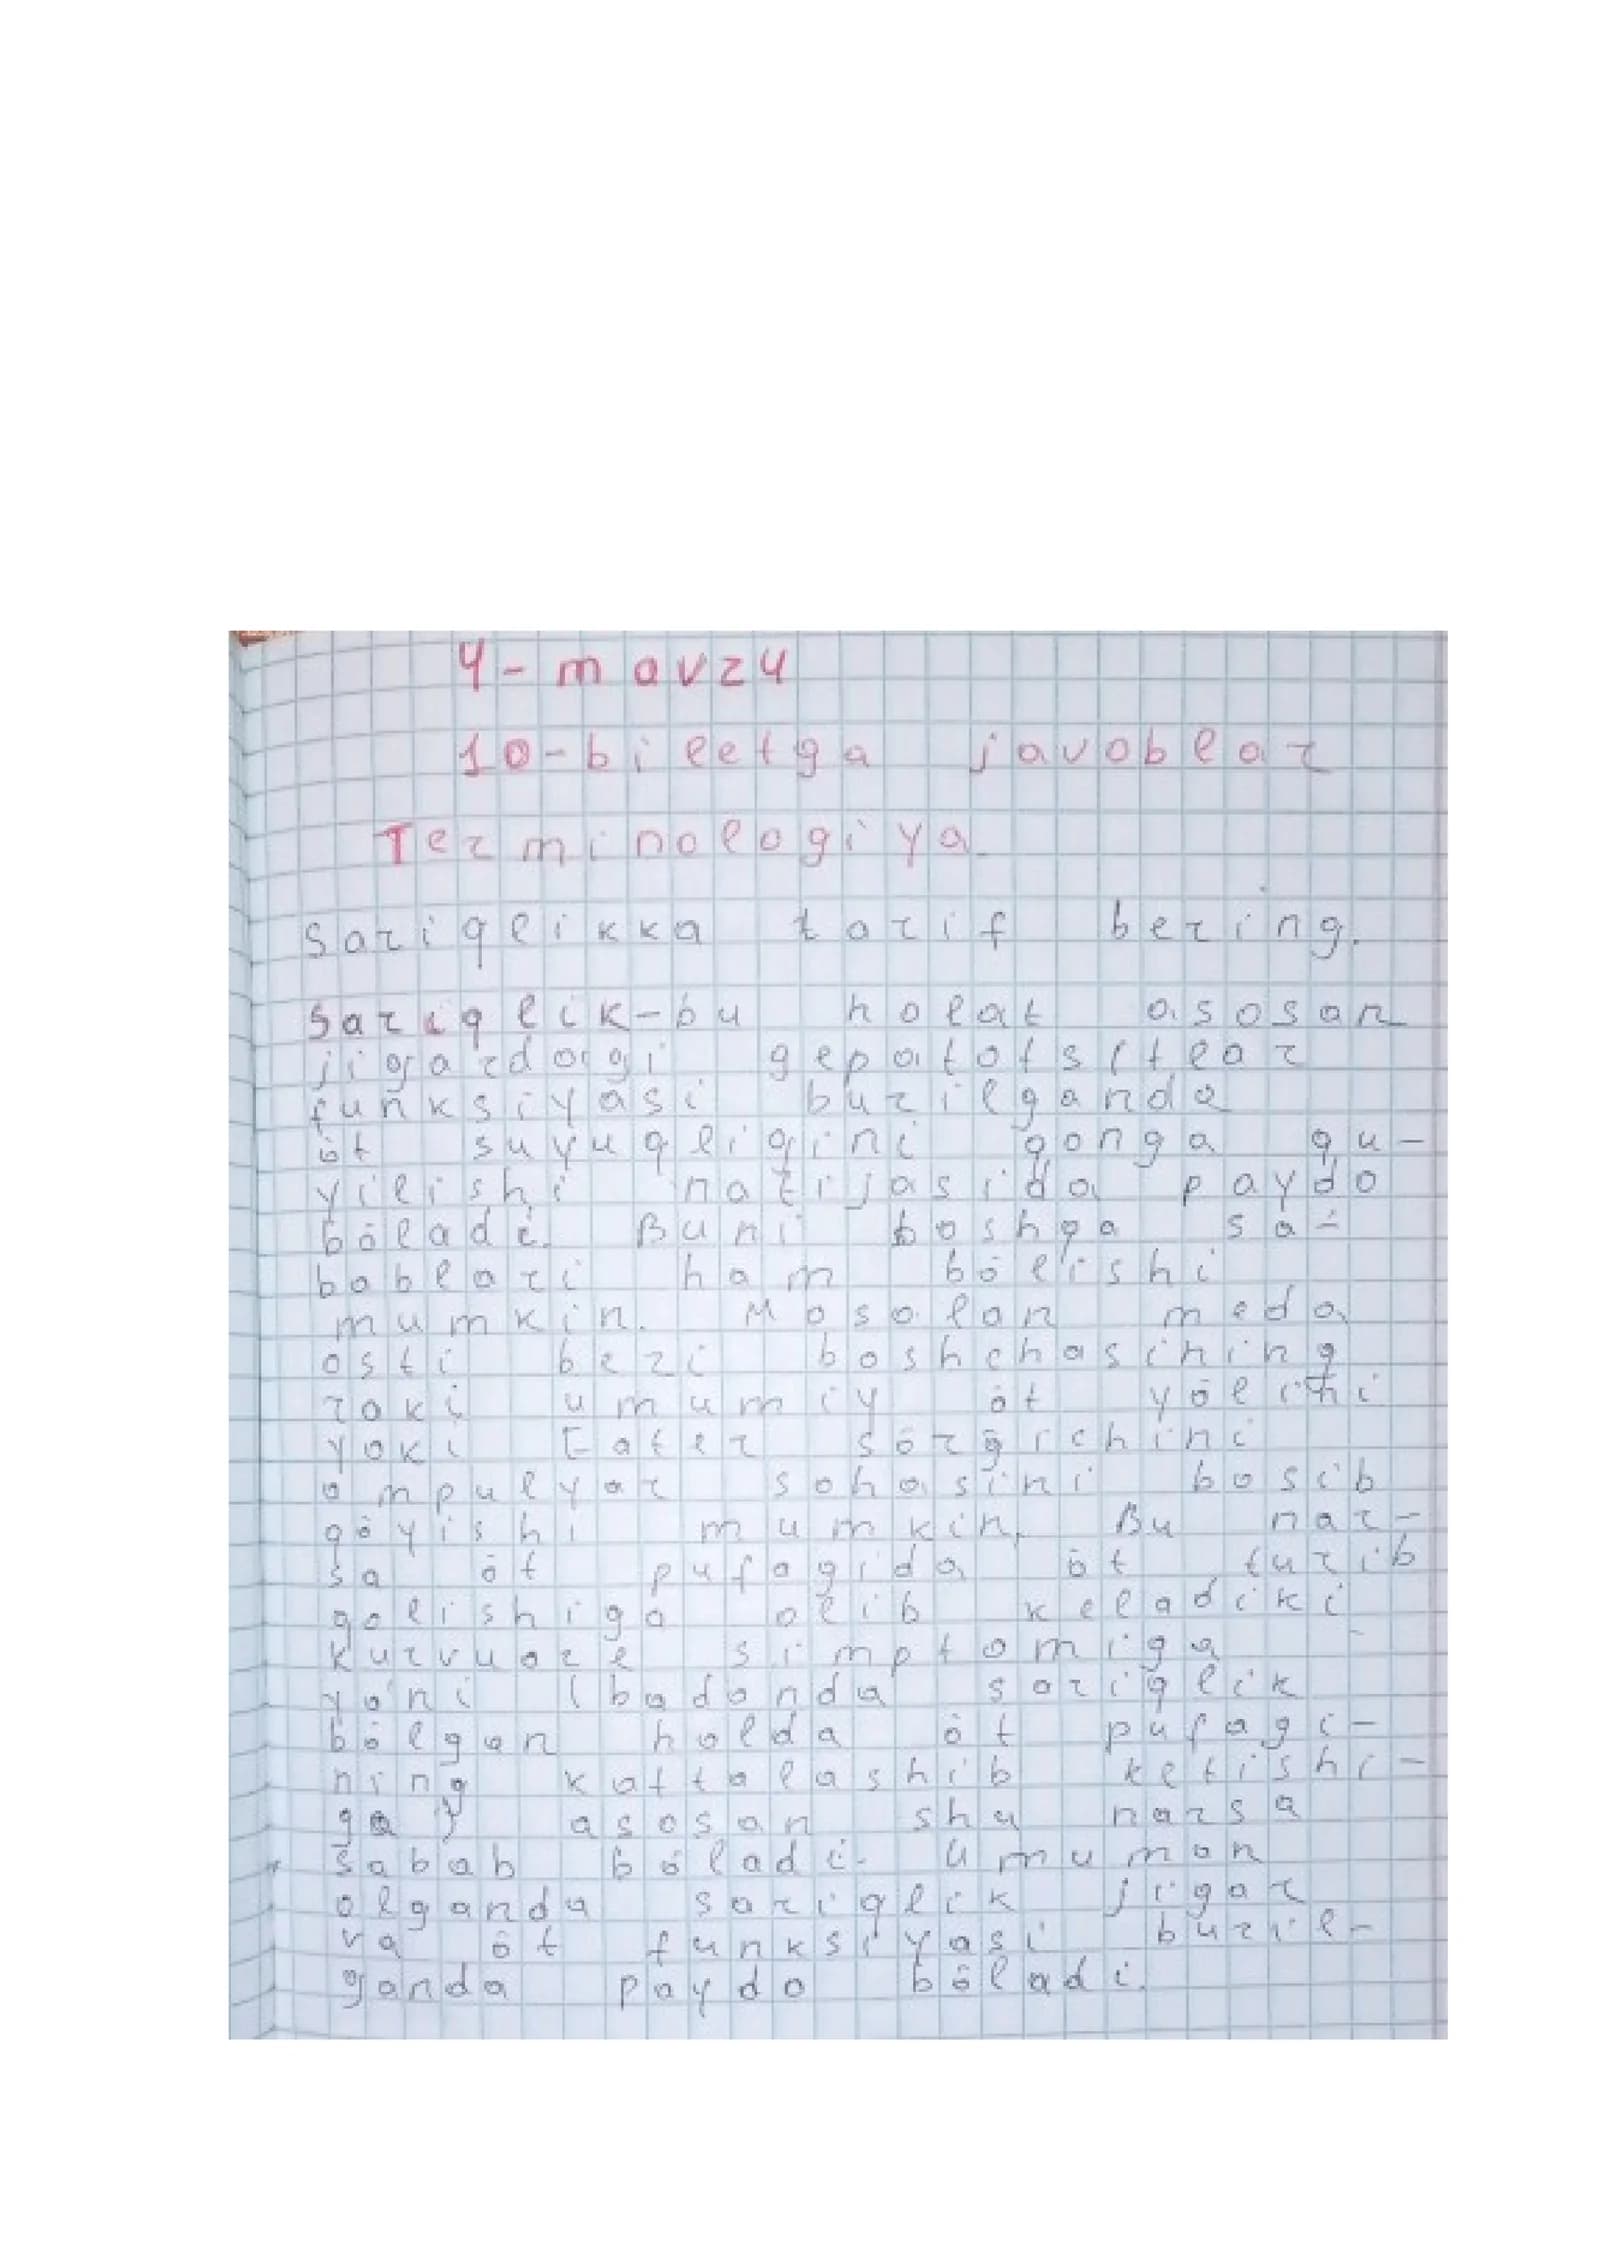 4-mavzu
10-biletga javoblar
Terminologiya
Sariqlikka tarif bering.
Sariqlik-bu holat asosan
jigardagi gepatotsitlar
funksiyasi buzilganda
öt suyuqligini qonga qu-
yilishi natijasida paydo
böladi. Buni boshqa sa-
bablari ham bölishi
mumkin. Masalan meda
osti bezi boshchasining
raki umumiy öt yölini
yoki Fater sörg'ichini
ampulyar sohasini bosib
qöyishi mumkin. Bu nar-
sa öt pufagida öt turib
qolishiga olib keladiki
Kurvuaze simptomiga
ya'ni (badanda sariqlik
bölgan holda öt pufagi-
ning kattalashib ketishi-
ga) asosan shu narsa
sabab böladi. Umuman
olganda sariqlik jigar
va öt funksiyasi buzil-
ganda paydo böladi.